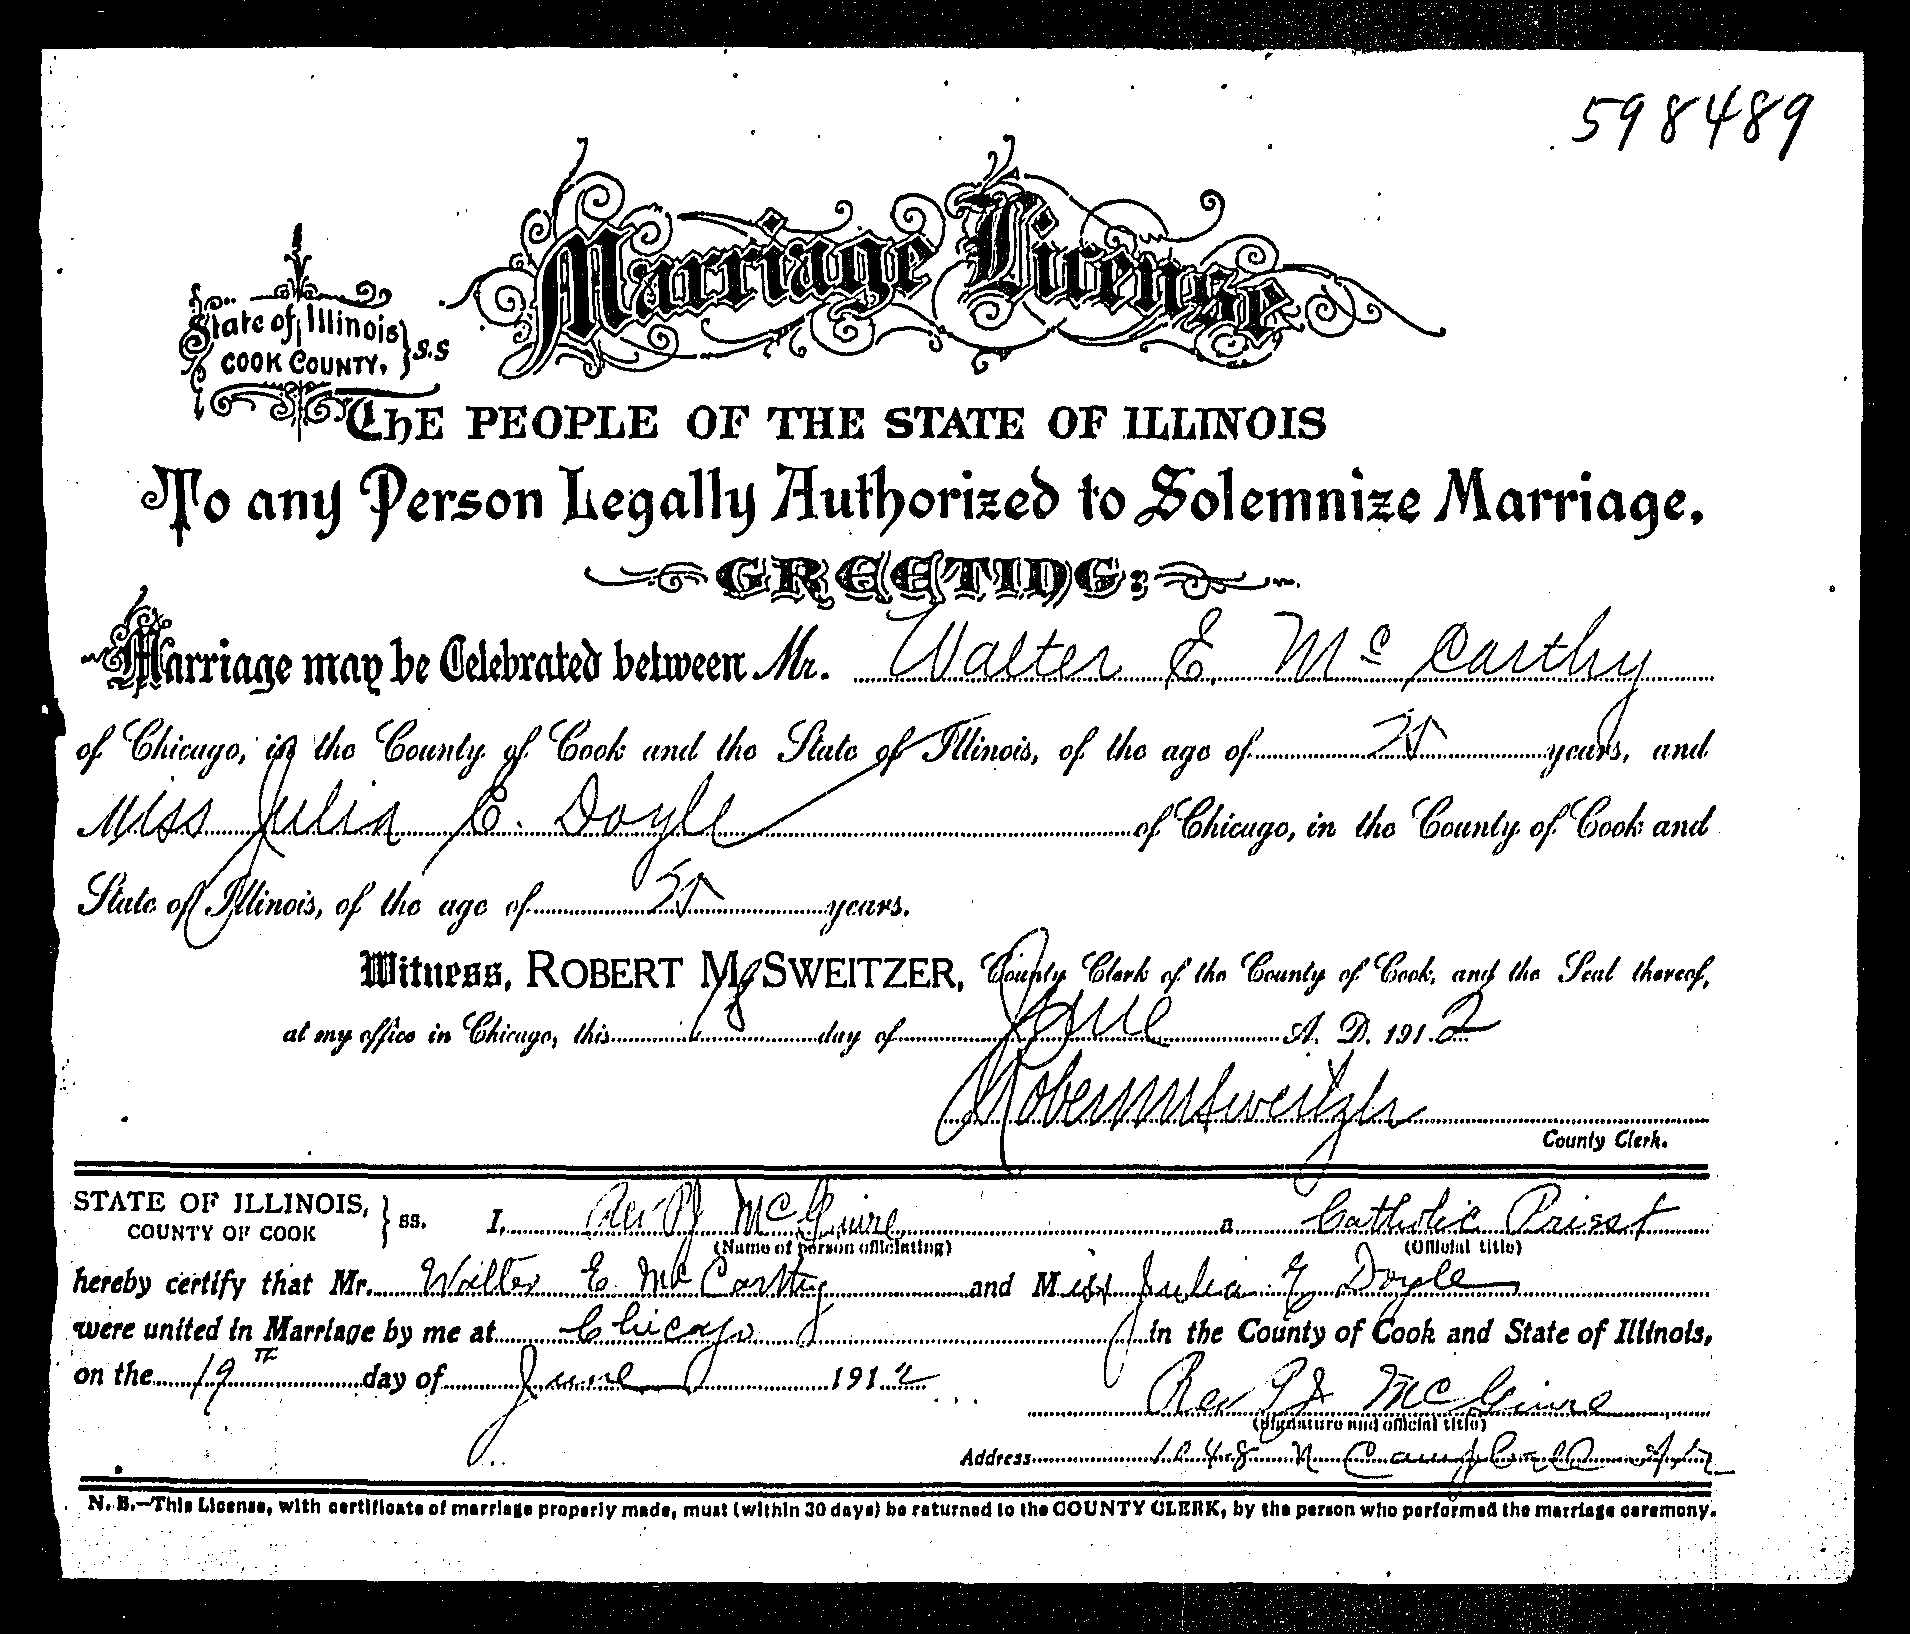 598489
Marriage License
State of Illinois
COOK COUNTY, } S.S
THE PEOPLE OF THE STATE OF ILLINOIS
To any Person Legally Authorized to Solemnize Marriage.
GREETING:
Marriage may be Celebrated between Mr. Walter E. Mc Carthy
of Chicago, in the County of Cook and the State of Illinois, of the age of 25 years, and
Miss Julia E. Doyle of Chicago, in the County of Cook and
State of Illinois, of the age of 25 years.
Witness, ROBERT M. SWEITZER, County Clerk of the County of Cook, and the Seal thereof,
at my office in Chicago, this 18 day of June A. D. 1912
Robert M Sweitzer
County Clerk.
STATE OF ILLINOIS,
COUNTY OF COOK } ss. I, Rev PJ McGuire a Catholic Priest
(Name of person officiating) (Official title)
hereby certify that Mr. Walter E. Mc Carthy and Miss Julia E Doyle
were united in Marriage by me at Chicago in the County of Cook and State of Illinois,
on the 19th day of June 1912
Rev PJ McGuire
(Signature and official title)
Address N Campbell
N. B.—This License, with certificate of marriage properly made, must (within 30 days) be returned to the COUNTY CLERK, by the person who performed the marriage ceremony.